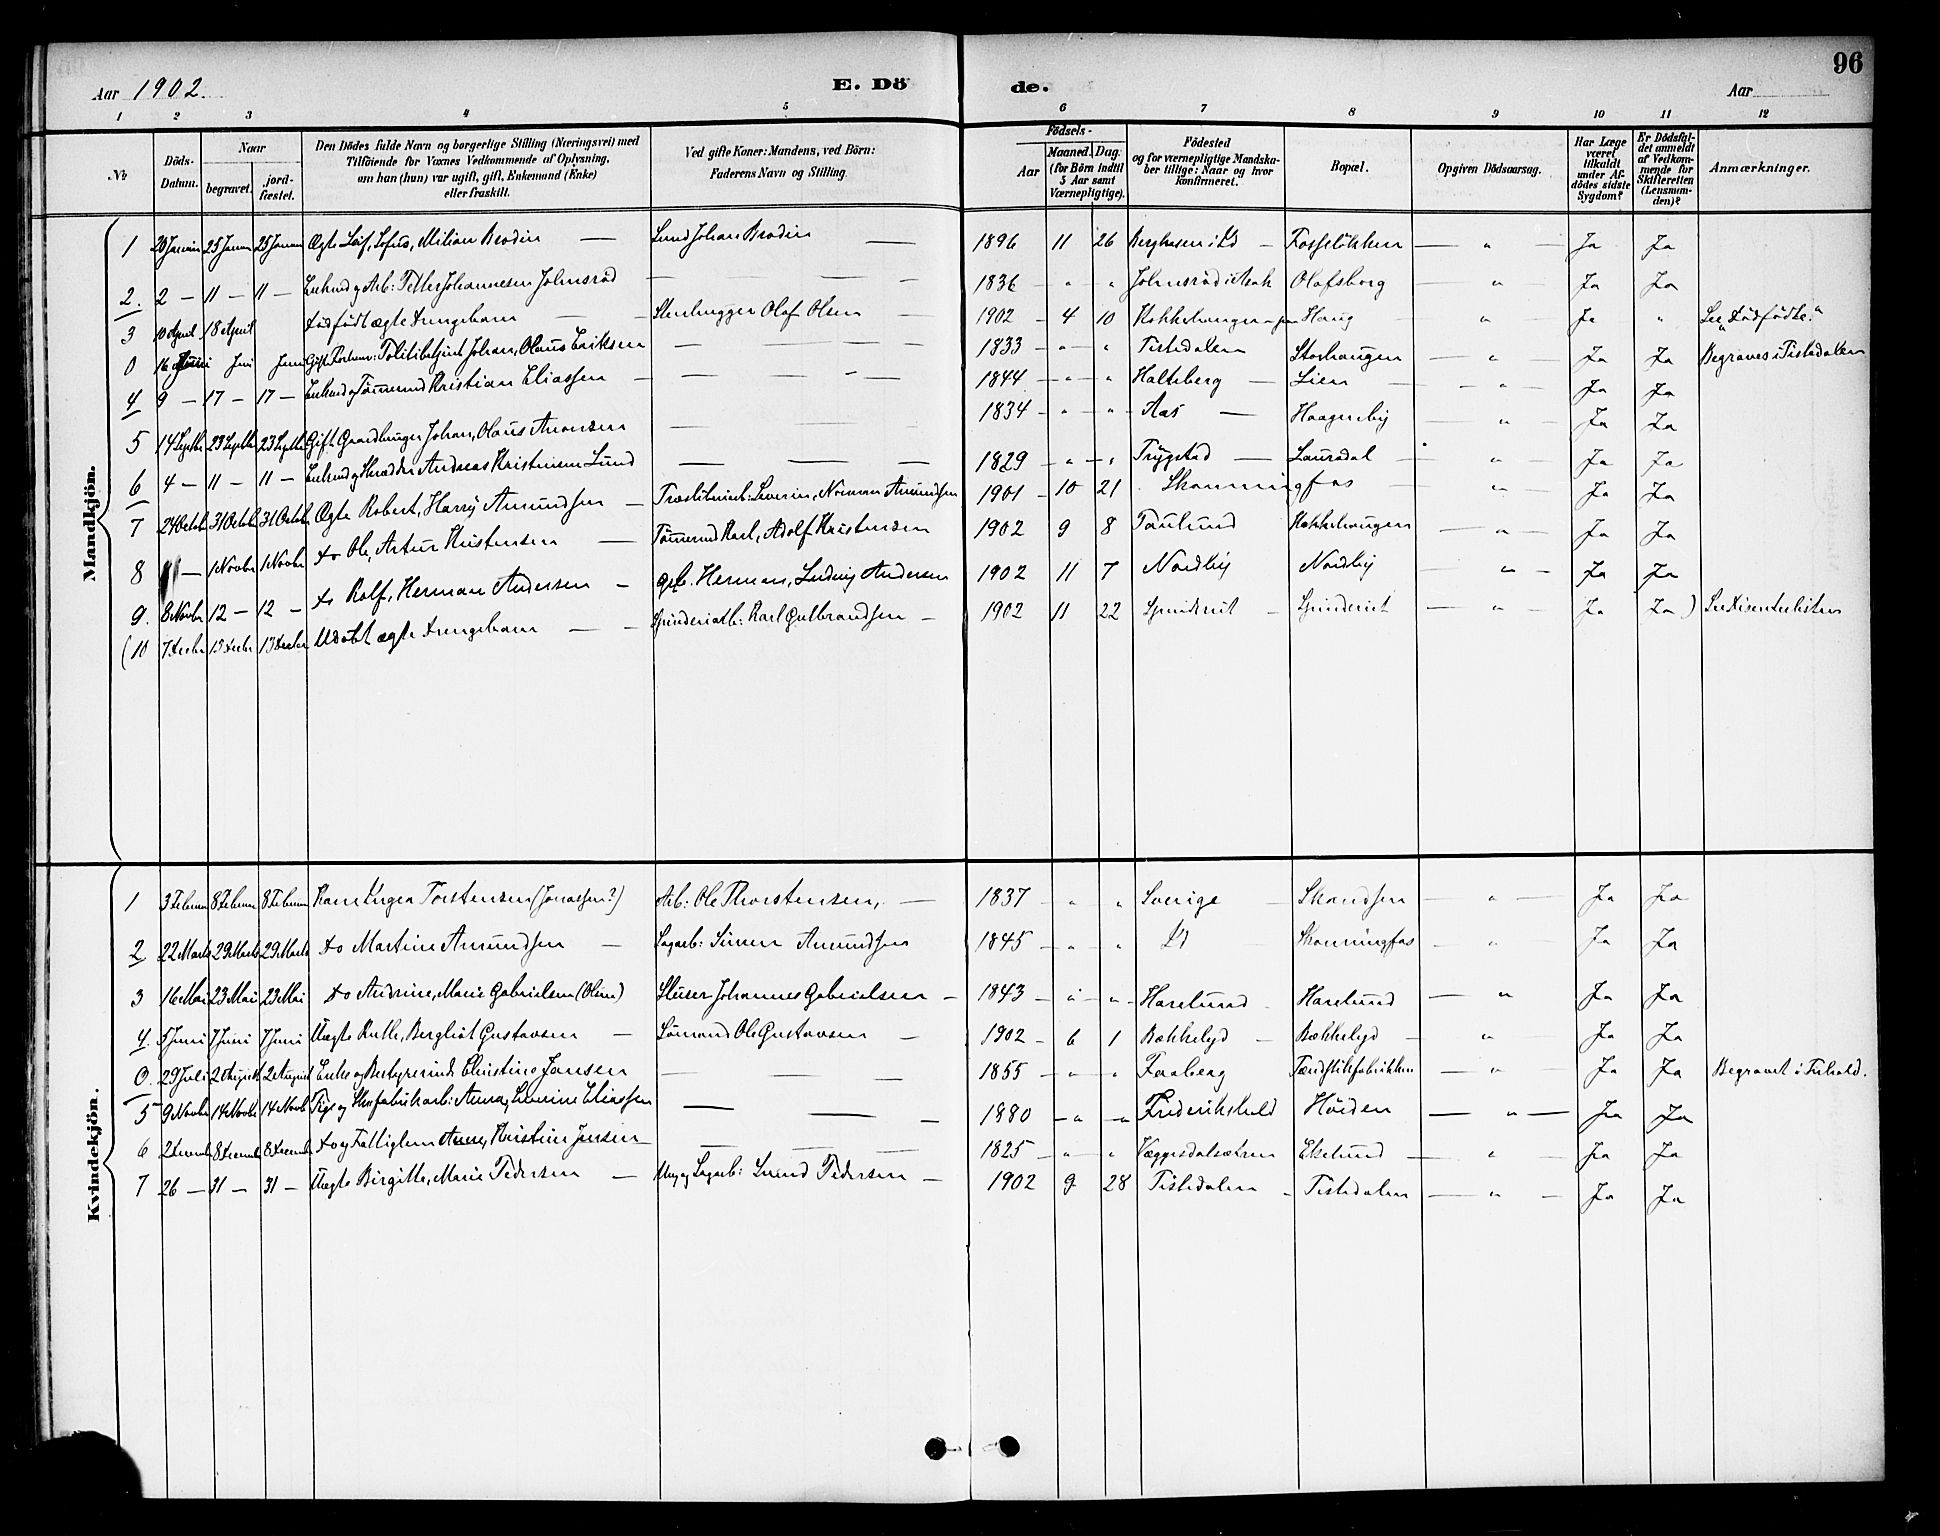 96
Aar 1902.
E. Dö de.
Aar
1 2 3 4 5 6 7 8 9 10 11 12
No
Döds-Datum.
Naar
begravet.
jord-fæstet.
Den Dödes fulde Navn og borgerlige Stilling (Næringsvei) med
Tilföiende for Voxnes Vedkommende af Oplysning,
om han (hun) var ugift, gift, Enkemand (Enke)
eller fraskilt.
Ved gifte Koner: Mandens, ved Börn:
Faderens Navn og Stilling.
Födsels-
Aar
Maaned. Dag.
(for Börn indtil
5 Aar samt
Værnepligtige).
Födested
og for værnepligtige Mandska-
ber tillige: Naar og hvor
konfirmeret.
Bopæl.
Opgiven Dödsaarsag.
Har Læge
været
tilkaldt
under Af-
dödes sidste
Sygdom?
Er Dödsfal-
det anmeldt
af Vedkom-
mende for
Skifteretten
(Lensman-
den)?
Anmærkninger.
Mandkjön.
1 20 Januar 25 Januar 25 Januar Ægte Leif, Sofus, Milian Brodin — Johan Brodin — 1896 11 26 Berghusen i Id — Fosseløkken — " — Ja Ja
2. 2 — 11 — 11 — Enkemd og Arb: Petter Johannesen Johnsrød — — — 1836 - " " Johnsrød i Asak Olafsborg " Ja Ja
3 10 April 18 April Dødfødt ægte Drengebarn — Stenhugger Olaf Olsen — 1902 - 4 10 Haug " Ja " See "Dødfødte."
0 16 Juni Juni Juni Gift Politibetjent Johan, Olaus Eriksen — — — 1833 - " " Tistedalen Storhaugen — " Ja Ja Begraves i Tistedalen
4 9 — 17 — 17 — Enkemd og Tømmermd Kristian Eliassen — — — 1844 - " - " Halteberg — Lien — — " — Ja Ja
5 14 Septbr 23 Septbr 23 Septbr Gift Gaardbruger Johan, Olaus Aronsen — — — 1834 - " - " - Aas — Haagenby — " — Ja Ja
6 4 — 11 — 11 — Enkemd og Skrædder Andreas Kristiansen Lund — — — 1829 - " - " Trygstad — Laursdal — " — Ja Ja
7 24 Octob 31 Octob 31 Octob Ægte Robert, Harry Amundsen — Severin, Norman Amundsen 1901 - 10 21 Skonningfos — " — Ja Ja
8 — 1 Novbr 1 Novbr do Ole, Artur Kristensen — Tømmermd Karl, Adolf Kristensen 1902 9 8 Taulund Kokkehaugen — " — Ja Ja
9. 8 Novbr 12 — 12 — do Rolf, Herman Andersen — Herman, Ludvig Andersen 1902 11 7 Nordby Nordby — " — Ja Ja
(10 7 Decbr 13 Decbr 13 Decbr Udøbt ægte Drengebarn — — Spinderiarb: Karl Gulbrandsen — 1902 11 22 Spinderiet — Spinderiet — " — Ja Ja ) See Dissenterlisten
Kvindekjön.
1 3 Februar 8 Februar 8 Februar Kone Inger Torstensen (Jonassen?) Arb: Ole Thorstensen, — 1837 - " " Sverige — Skandsen — " — Ja Ja
2 22 Marts 29 Marts 29 Marts do Martine Amundsen — Sagarb: Simen Amundsen 1845 - " " Id Skonningfos — " — Ja Ja
3 16 Mai 23 Mai 23 Mai do Andrine, Marie Gabrielsen (Olsen) Sluser Johannes Gabrielsen — 1843 - " - " - Harelund Harelund — " Ja Ja
4. 5 Juni 7 Juni 7 Juni Uægte Ruth, Bergliot Gustavsen — Sømand Ole Gustavsen — 1902 - 6 1 Bækkelyd — Bækkelyd — " — Ja Ja
0. 29 Juli 2 August 2 August Enke og Bestyrerinde Christine Jansen — — 1855 - " " Faaberg Tændstikfabrikken — " — Ja Ja Begravet i Frhald.
5 9 Novbr 14 Novbr 14 Novb Pige og Skofabrikarb: Anna, Severine Eliassen — — — 1880 - " - " Frederikshald Høiden — " — Ja Ja
6 2 Decemb 8 Decemb 8 Decemb do og Fattiglem Anne, Kristine Jensen — — — 1825 - " - " Væggesdalsætren Ekelund — " — Ja Ja
7 26 — 31 — 31 — Uægte Birgitte, Marie Pedersen — Ung og Sagarb: Pedersen — 1902 9 28 Tistedalen — Tistedalen — " — Ja Ja